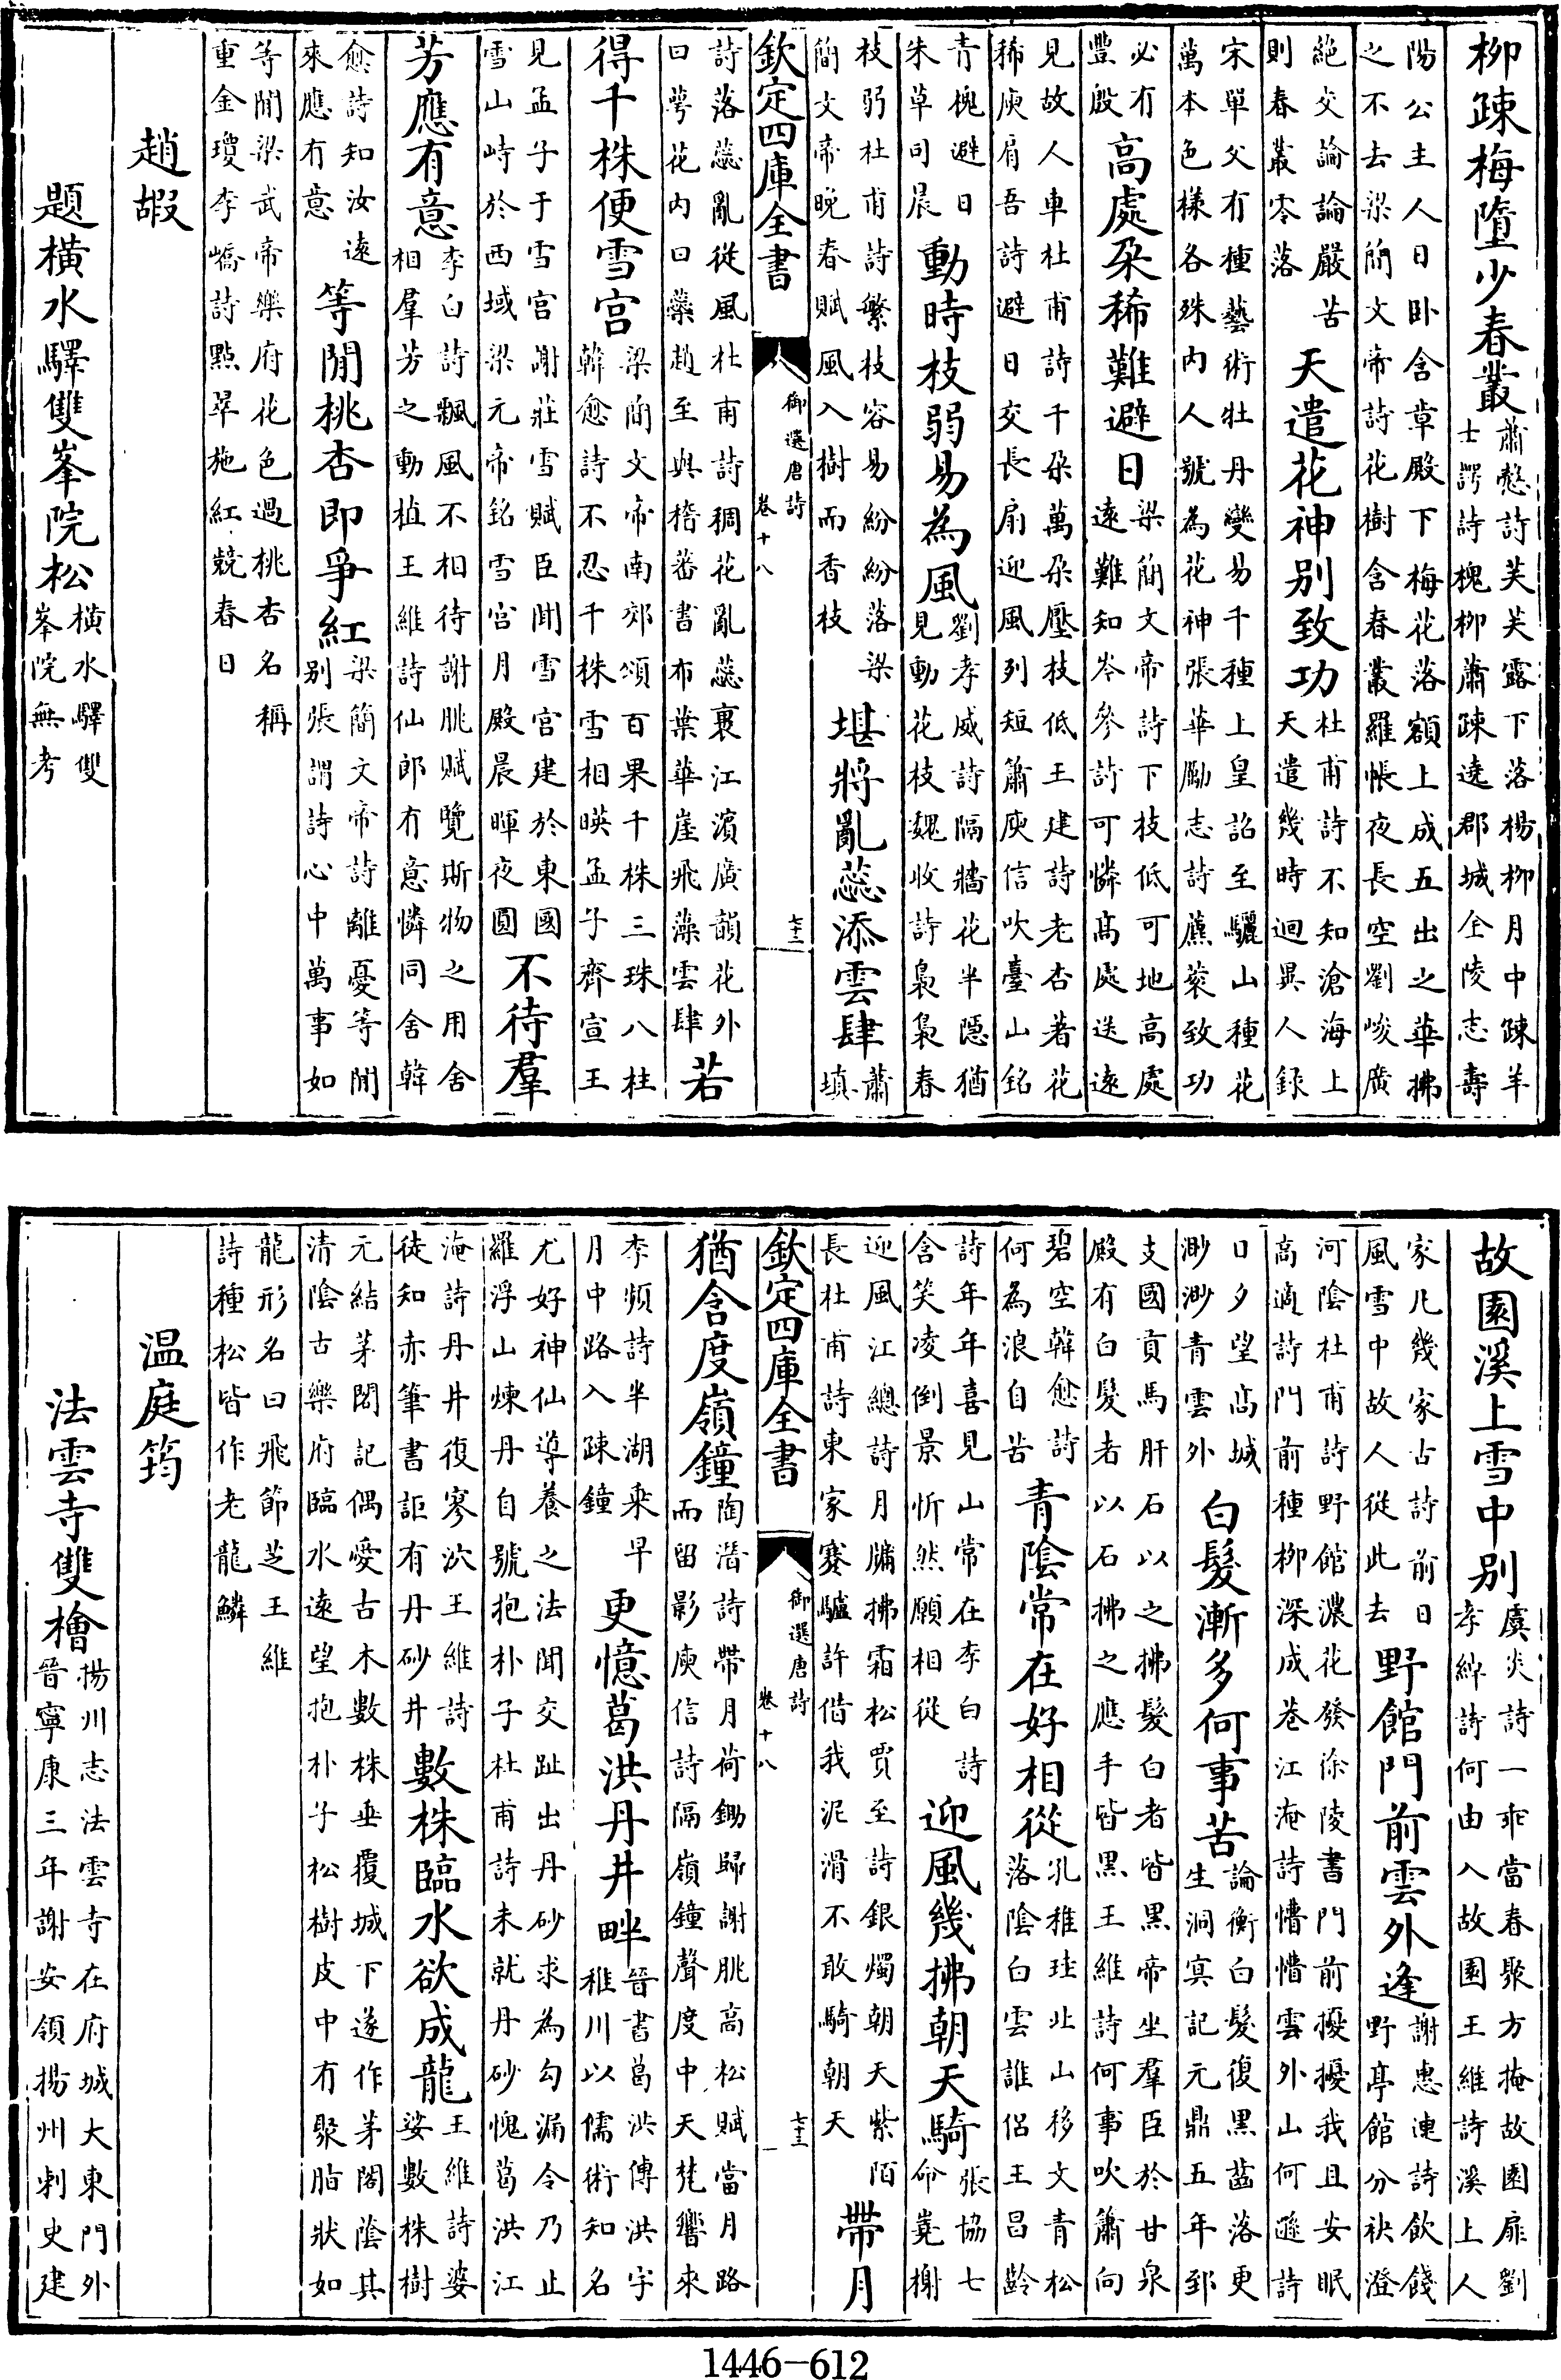 柳疎梅墮少春叢蕭慤詩芙芙露下落楊柳月中疎羊士諤詩槐柳蕭疎遶郡城金陵志壽
陽公主人日卧含章殿下梅花落額上成五出之華拂之不去梁簡文帝詩花樹含春叢羅帳夜長空劉峻廣
絶交論論嚴苦則春叢零落天遣花神别致功杜甫詩不知滄海上天遣幾時迴異人錄
宋單父有種藝術牡丹變易千種上皇詔至驪山種花萬本色樣各殊内人號為花神張華勵志詩藨蔉致功
必有豐殷高處朶稀難避日梁簡文帝詩下枝低可地高處遠難知岑參詩可憐髙處送遠
見故人車杜甫詩千朶萬朶壓枝低王建詩老杏着花稀庾肩吾詩避日交長扇迎風列短簫庾信吹臺山銘
青槐避日朱草司晨動時枝弱易為風劉孝威詩隔牆花半隱猶見動花枝魏收詩裊裊春
枝弱杜甫詩繁枝容易紛紛落梁簡文帝晚春賦風入樹而香枝堪將亂蕊添雲肆蕭塡
欽定四庫全書 御選唐詩 卷十八 七十二
詩落蕊亂從風杜甫詩稠花亂蕊裹江濱廣韻花外曰萼花内曰蘂趙至與嵇蕃書布葉華崖飛藻雲肆若
得千株便雪宫梁簡文帝南郊頌百果千株三珠八柱韓愈詩不忍千株雪相暎孟子齊宣王
見孟子于雪宫謝莊雪賦臣聞雪宫建於東國雪山峙於西域梁元帝銘雪宫月殿晨暉夜圓不待羣
芳應有意李白詩飄風不相待謝朓賦覽斯物之用舍相羣芳之動植王維詩仙郎有意憐同舍韓
愈詩知汝遠來應有意等閒桃杏即爭紅梁簡文帝詩離憂等閒别張謂詩心中萬事如
等閒梁武帝樂府花色過桃杏名稱重金瓊李嶠詩點翠施紅競春日
趙嘏
題横水驛雙峯院松横水驛雙峯院無考
故園溪上雪中别虞炎詩一乖當春聚方掩故園扉劉孝綽詩何由入故園王維詩溪上人
家凡幾家古詩前日風雪中故人從此去野館門前雲外逢謝惠連詩飲餞野亭館分袂澄
河陰杜甫詩野館濃花發徐陵書門前擾擾我且安眠高適詩門前種柳深成巷江淹詩㦗㦗雲外山何遜詩
日夕望髙城渺渺青雲外白髮漸多何事苦論衡白髮復黑齒落更生洞冥記元鼎五年郅
支國貢馬肝石以之拂髮白者皆黑帝坐羣臣於甘泉殿有白髮者以石拂之應手皆黑王維詩何事吹簫向
碧空韓愈詩何為浪自苦青陰常在好相從孔稚珪北山移文青松落陰白雲誰侶王昌齡
詩年年喜見山常在李白詩含笑凌倒景忻然願相從迎風幾拂朝天騎張協七命嶤榭
迎風江總詩月牖拂霜松賈至詩銀燭朝天紫陌長杜甫詩東家蹇驢許借我泥滑不敢騎朝天帶月
欽定四庫全書 御選唐詩 卷十八 七十三
猶含度嶺鐘陶潛詩帶月荷鋤歸謝朓高松賦當月路而留影庾信詩隔嶺鐘聲度中天梵響來
李頻詩半湖乘早月中路入疎鐘更憶葛洪丹井畔晉書葛洪傳洪字稚川以儒術知名
尤好神仙導養之法聞交趾出丹砂求為勾漏令乃止羅浮山煉丹自號抱朴子杜甫詩未就丹砂愧葛洪江
淹詩丹井復寥泬王維詩徒知赤筆書詎有丹砂井數株臨水欲成龍王維詩婆娑數株樹
元結茅閣記偶愛古木數株垂覆城下遂作茅閣陰其清陰古樂府臨水遠望抱朴子松樹皮中有聚脂狀如
龍形名曰飛節芝王維詩種松皆作老龍鱗
温庭筠
法雲寺雙檜揚州志法雲寺在府城大東門外晉寧康三年謝安領揚州刺史建
1446-612